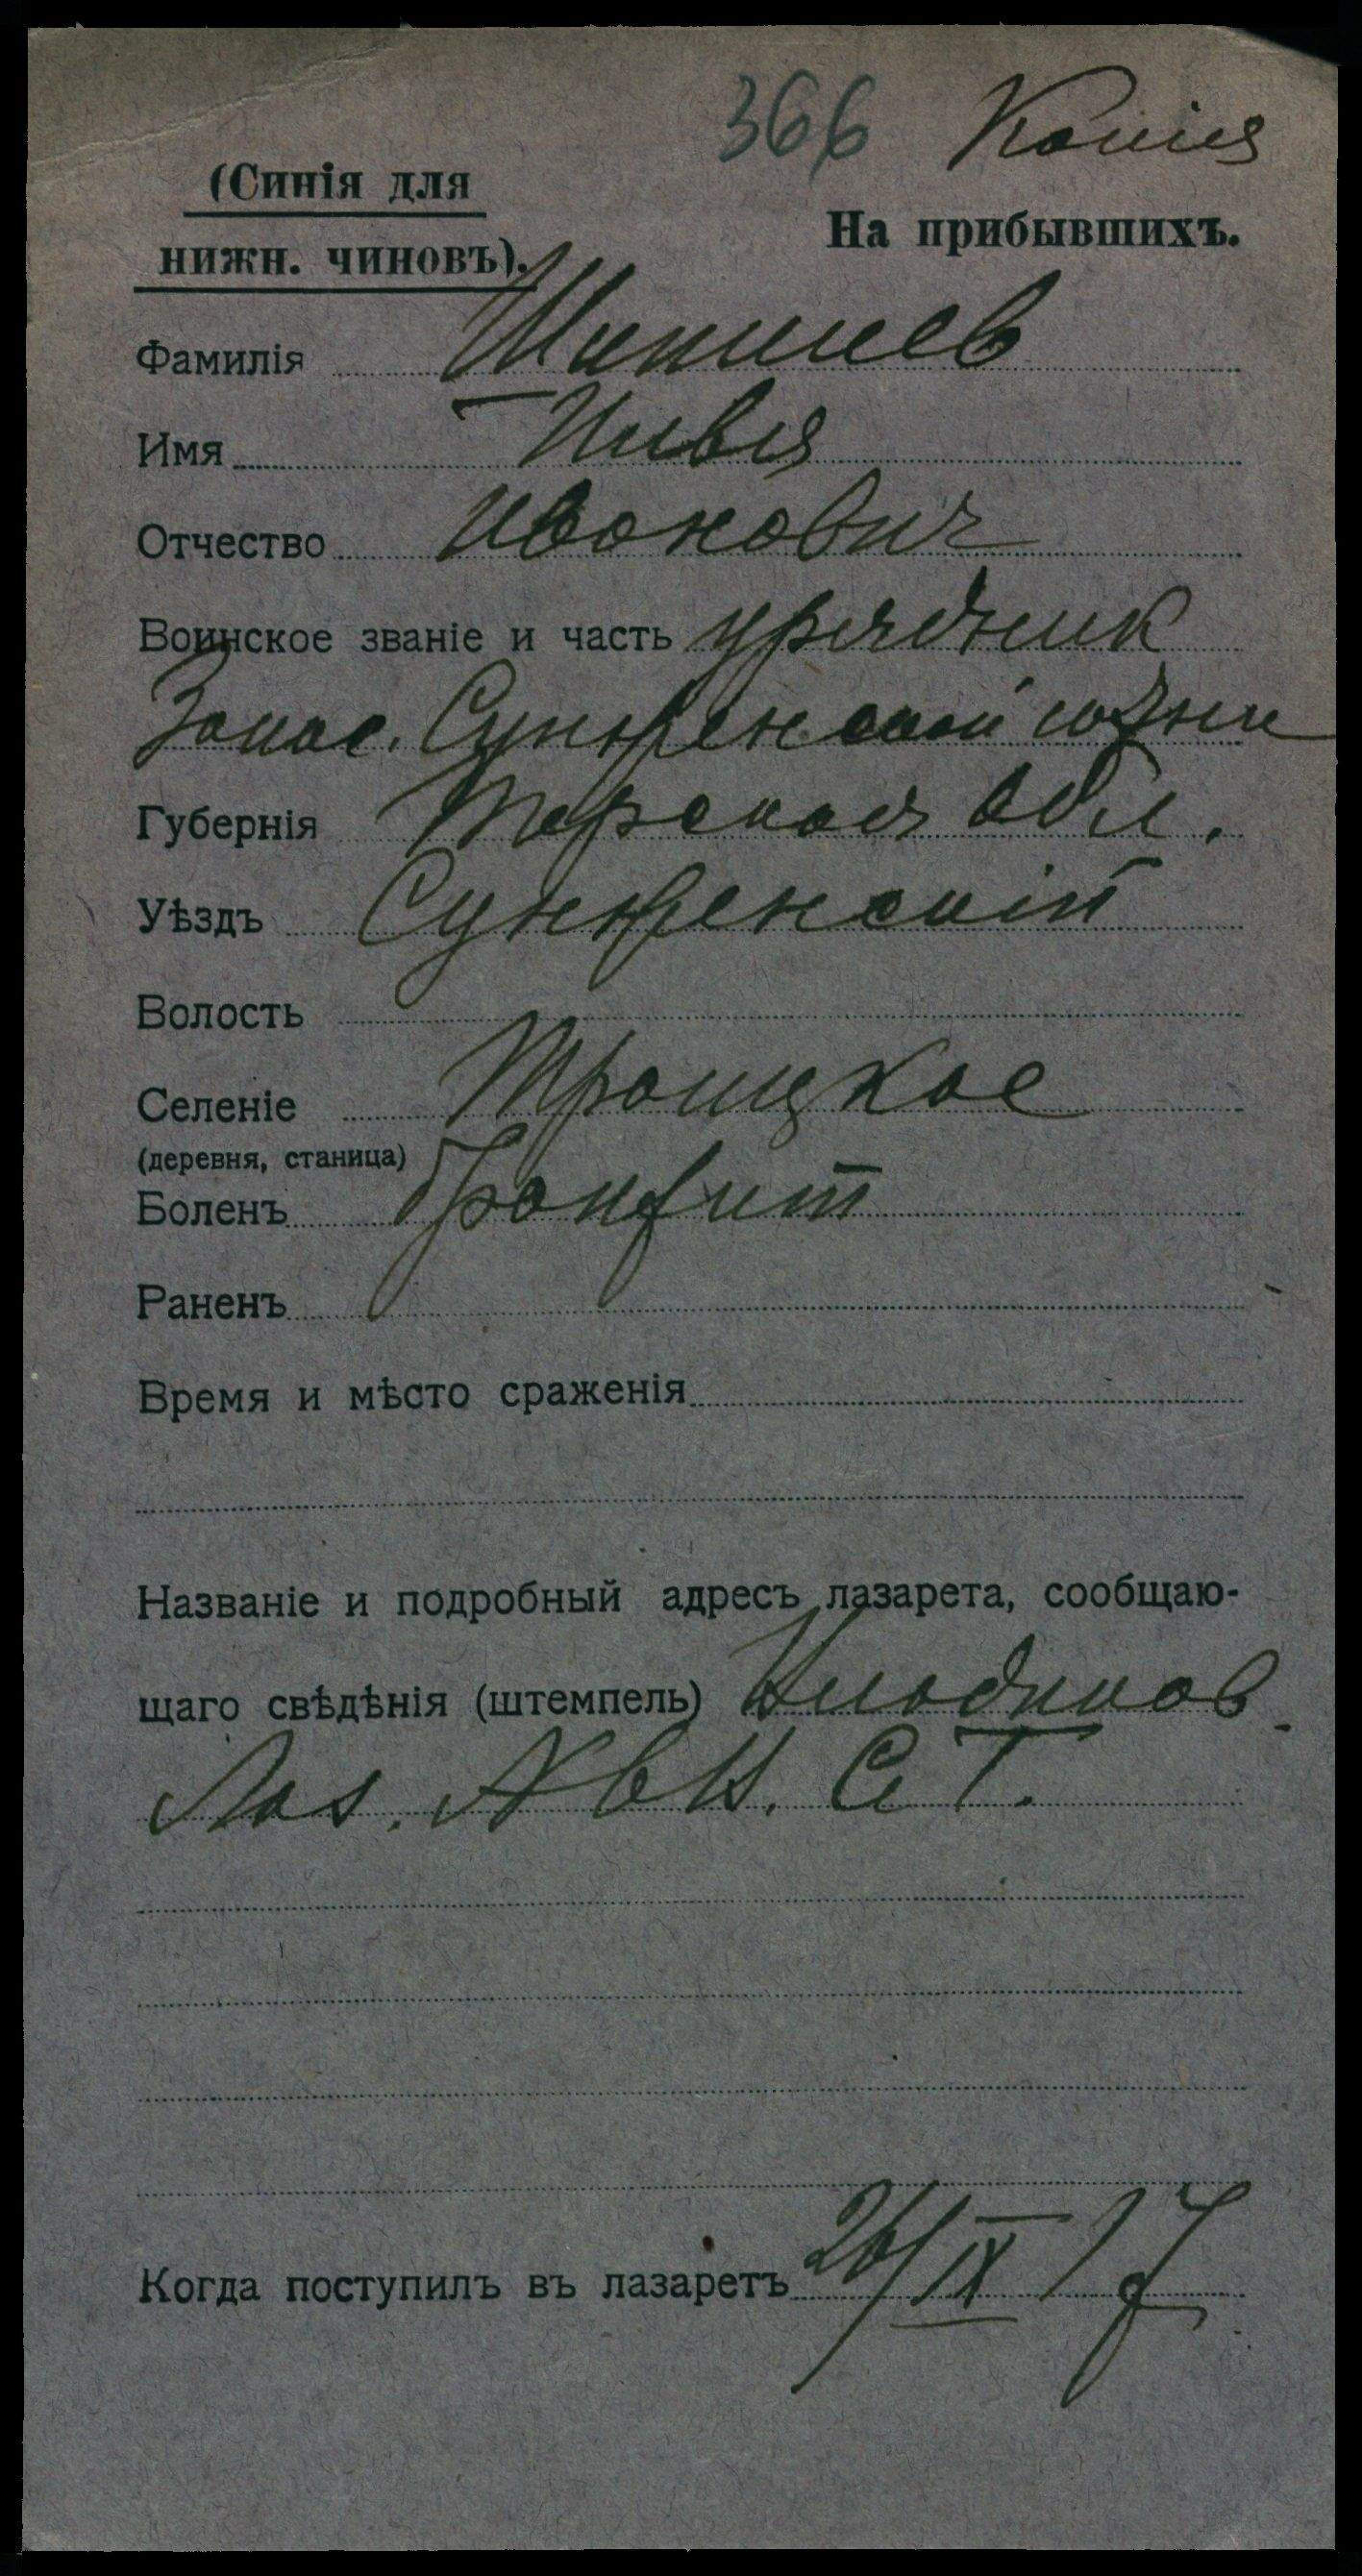 366 Копия
(Синія для
нижн. чиновъ).
На прибывшихъ.
Фамилія
Имя
Отчество Иванович
Воинское званіе и часть урядник
Запас. Сунженской сотни
Губернія Терская обл.
Уѣздъ Сунженскій
Волость
Селеніе Троицкое
(деревня, станица)
Боленъ Бронхит
Раненъ
Время и мѣсто сраженія
Названіе и подробный адресъ лазарета, сообщаю-
щаго свѣдѣнія (штемпель)
Лаз.
Когда поступилъ въ лазаретъ 26/IX 17